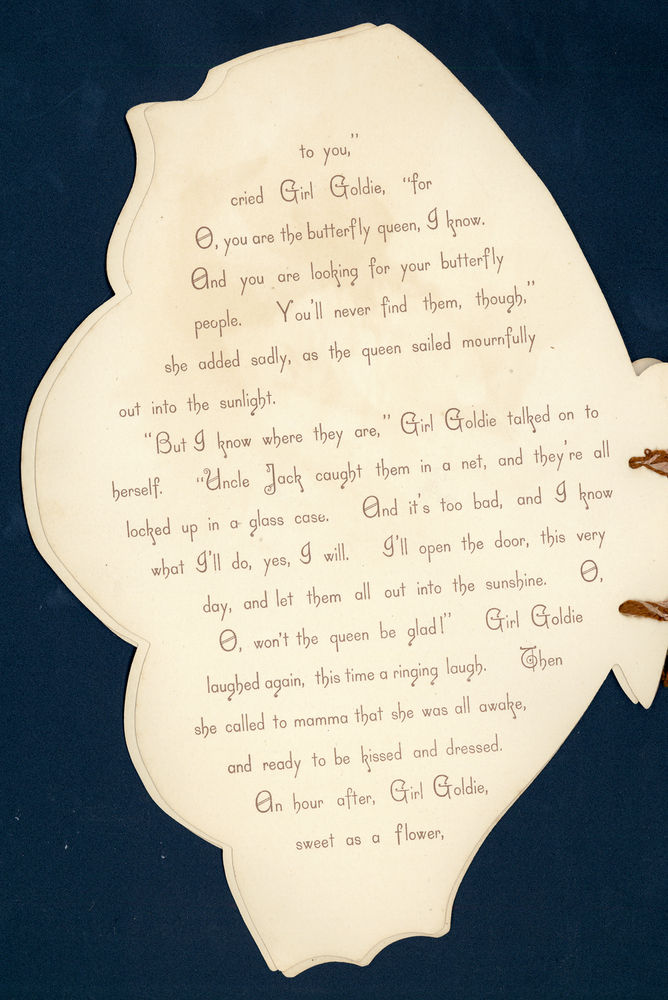 to you,”
cried Girl Goldie, “for
O, you are the butterfly queen, I know.
And you are looking for your butterfly
people. You'll never find them, though,”
she added sadly, as the queen sailed mournfully
out into the sunlight.
“But I know where they are,” Girl Goldie talked on to
herself. “Uncle Jack caught them in a net, and they're all
locked up in a glass case. And it's too bad, and I know
what I'll do, yes, I will. I'll open the door, this very
day, and let them all out into the sunshine. O,
O, won't the queen be glad!” Girl Goldie
laughed again, this time a ringing laugh. Then
she called to mamma that she was all awake,
and ready to be kissed and dressed.
An hour after, Girl Goldie,
sweet as a flower,